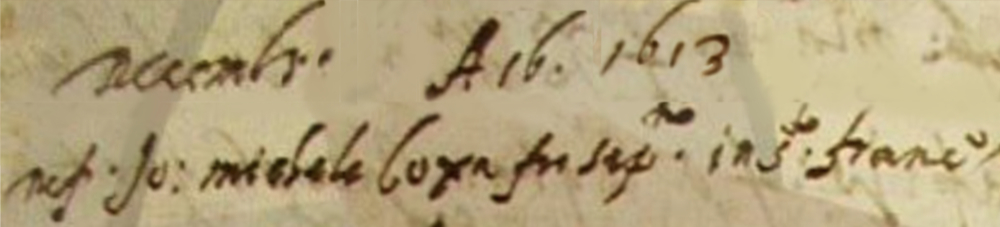 Decembr. A 16. 1613
nef. Jo: michele Coxa fu sep.to in S.to franc.o